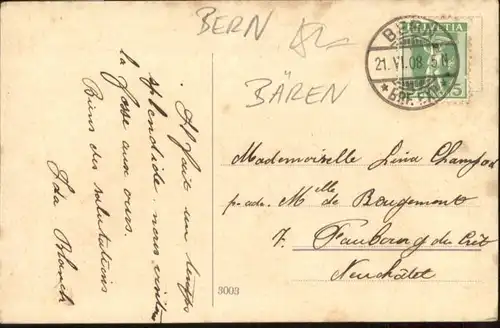 BERN
BÄREN
HELVETIA
5
BERN
21. VI. 08. 5N
* BRF. EXP. *
Il fait un temps
splendide, nous visitons
la fosse aux ours.
Biens des salutations
Ida Blanch
Mademoiselle Lina Champod
p. adr. Mlle de Bougemont
7. Faubourg du Crêt
Neuchâtel
3003